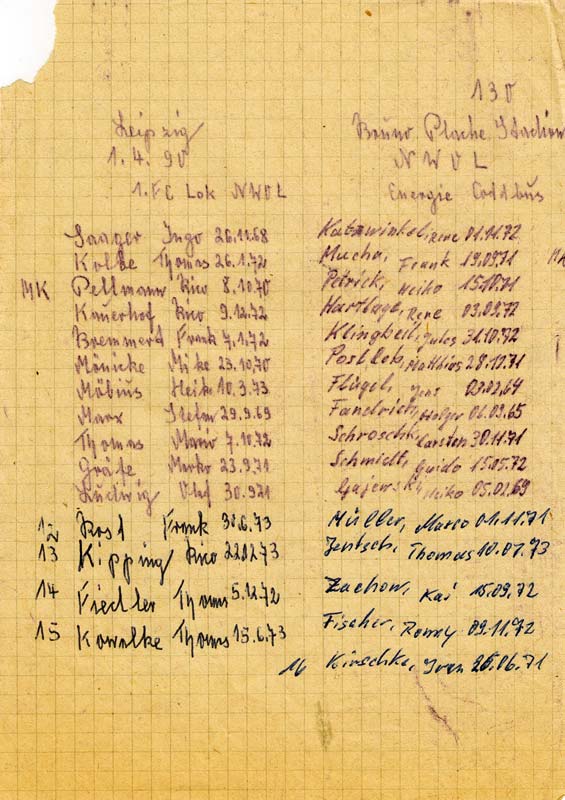 130
Leipzig
Bruno Plache Stadion
1.4.90
NWOL
1.FC Lok NWOL
Energie Cottbus
Saager Ingo 26.11.68
Katzwinkel, Rene 01.11.72
Kolbe Thomas 26.1.72
Mucha, Frank 19.09.71 MK
MK Pellmann Rico 8.10.70
Petrick, Heiko 15.10.71
Kauerhof Rico 9.12.72
Hartlage, Rene 09.09.72
Bremmert Frank 4.1.72
Klingbeil, Jules 31.10.72
Mönicke Mike 23.10.70
Matthias 28.12.71
Möbius Heiko 10.3.73
Flügel, Jens 03.02.64
Marx Stefan 29.9.69
Fandrich, Holger 06.09.65
Thomas Mario 7.10.72
Schroschk, Carsten 30.11.71
Gräfe Marko 23.9.71
Schmidt, Guido 15.05.72
Ludwig Olaf 30.9.71
Gajewski, Heiko 05.01.69
12 Jost Frank 30.6.73
Müller, Marco 01.11.71
13 Kipping Rico
Jentsch, Thomas 10.07.73
14 Fiedler Thoms 5.12.72
Zachow, Kai 15.09.72
15 Kowalke Thoms 15.6.73
Fischer, Ronny 09.11.72
16 Kirschke, Sven 26.06.71